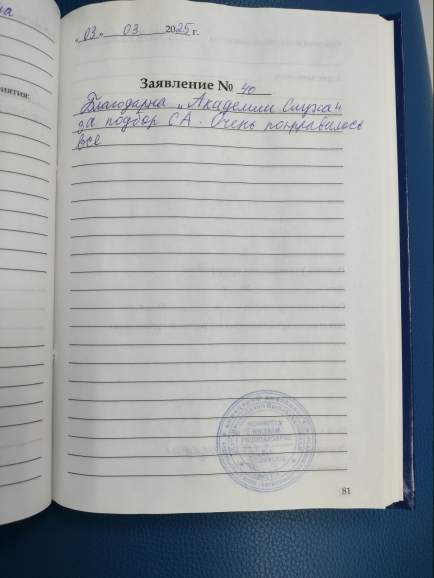 „03" 03 2025 г.
Заявление № 40
Благодарна „Академии Слуха"
за подбор СА. Очень понравилось
все
81